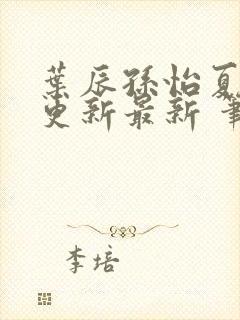 葉辰孫怡夏
更新最新 筆
李培